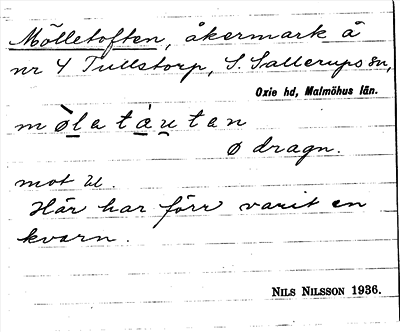 Mölletoften, åkermark å
nr 4 Tullstorp, S. Sallerups sn,
Oxie hd, Malmöhus län.
mølatàutan
ø dragn.
mot u.
Här har förr varit en
kvarn.
NILS NILSSON 1936.